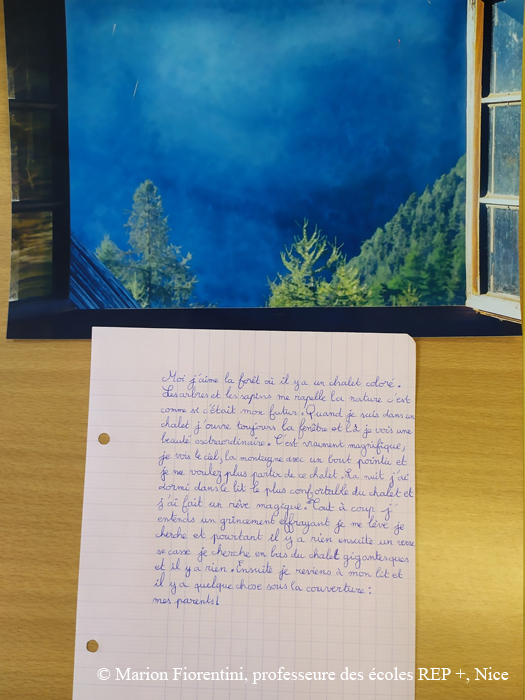 Moi j'aime la forêt où il y a un chalet coloré.
Les arbres et les sapins me rapelle la nature c'est
comme si c'était mon futur. Quand je suis dans un
chalet j'ouvre toujours la fenêtre et là je vois une
beauté extraordinaire. C'est vraiment magnifique,
je vois le ciel, la montagne avec un bout pointu et
je ne voulez plus partir de ce chalet. La nuit j'ai
dormi dans le lit le plus confortable du chalet et
j'ai fait un rêve magique. Tout à coup j'
entends un grincement effrayant je me lève je
cherche et pourtant il y a rien ensuite un verre
se casse je cherche en bas du chalet gigantesques
et il y a rien. Ensuite je reviens à mon lit et
il y a quelque chose sous la couverture :
mes parents!
© Marion Fiorentini, professeure des écoles REP +, Nice